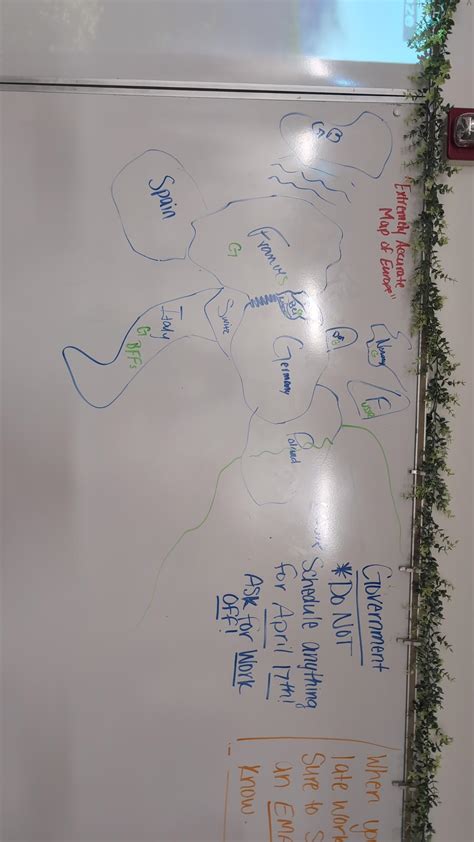 "Extremely Accurate
Map of Europe"
GB
Norway
G
Spain
France
G
Bel
Germany
Swiss
Italy
G BFFs
Poland
Government
*DO NOT
Schedule anything
for April 17th!
ASK for Work
OFF!
When you
late work
Sure to S
an EMA
Know.